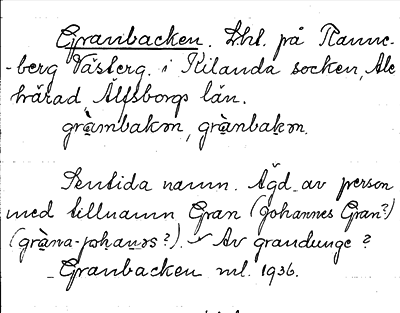 Granbacken. Lht. på Ranne-
-berg Västerg. i Kilanda socken, Ale
härad, Älfsborgs län.
gràmbakən, grànbakən.
Sentida namn. Ägd av person
med tillnamn Gran (Johannes Gran?)
(gràna-johanəs?). Av grandunge?
Granbacken ml. 1936.